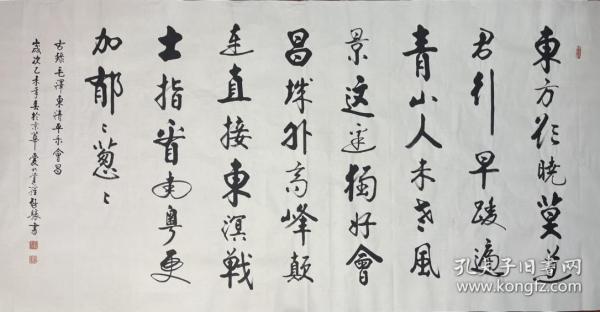 東方欲曉莫道
君行早踏遍
青山人未老風
景這邊獨好會
昌城外高峰顛
連直接東溟戰
士指看南粵更
加郁〻葱〻
右錄毛澤東清平樂會昌
歲次乙未年春於京華 書
孔夫子旧书网
www.kongfz.com